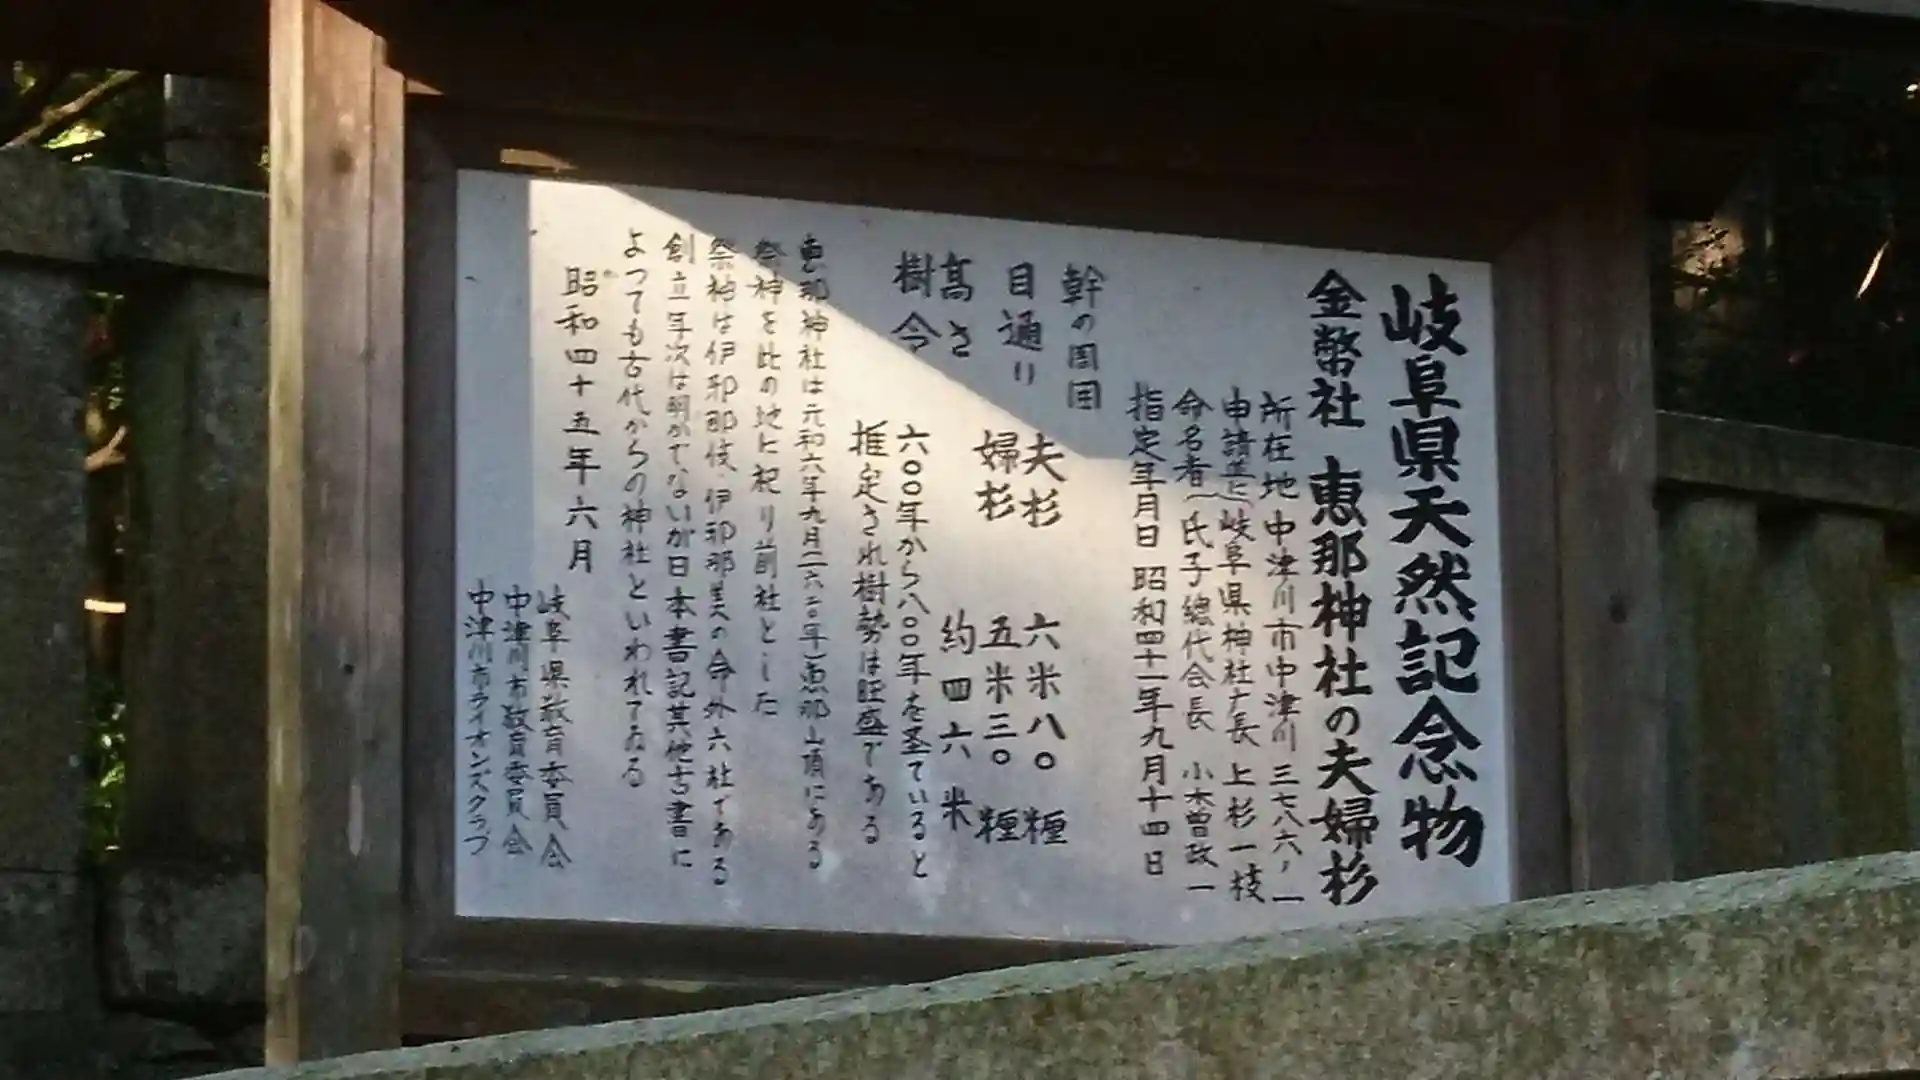 岐阜県天然記念物
金幣社 恵那神社の夫婦杉
所在地 中津川市中津川 三七八六ノ一
申請並に(岐阜県神社庁長 上杉一枝
命名者(氏子総代会長 小木曽政一
指定年月日 昭和四十一年九月十四日
幹の周囲
目通り 夫杉 六米八〇糎
婦杉 五米三〇糎
高さ 約四六米
樹令 六〇〇年から八〇〇年を経ていると
推定され樹勢は旺盛である
恵那神社は元和六年九月(一六二〇年)恵那山頂にある
祭神を此の地に祀り前社とした
祭神は伊邪那伎、伊邪那美の命外六社である
創立年次は明かでないが日本書記其他古書に
よつても古代からの神社といわれてゐる
昭和四十五年六月
岐阜県教育委員会
中津川市教育委員会
中津川市ライオンズクラブ